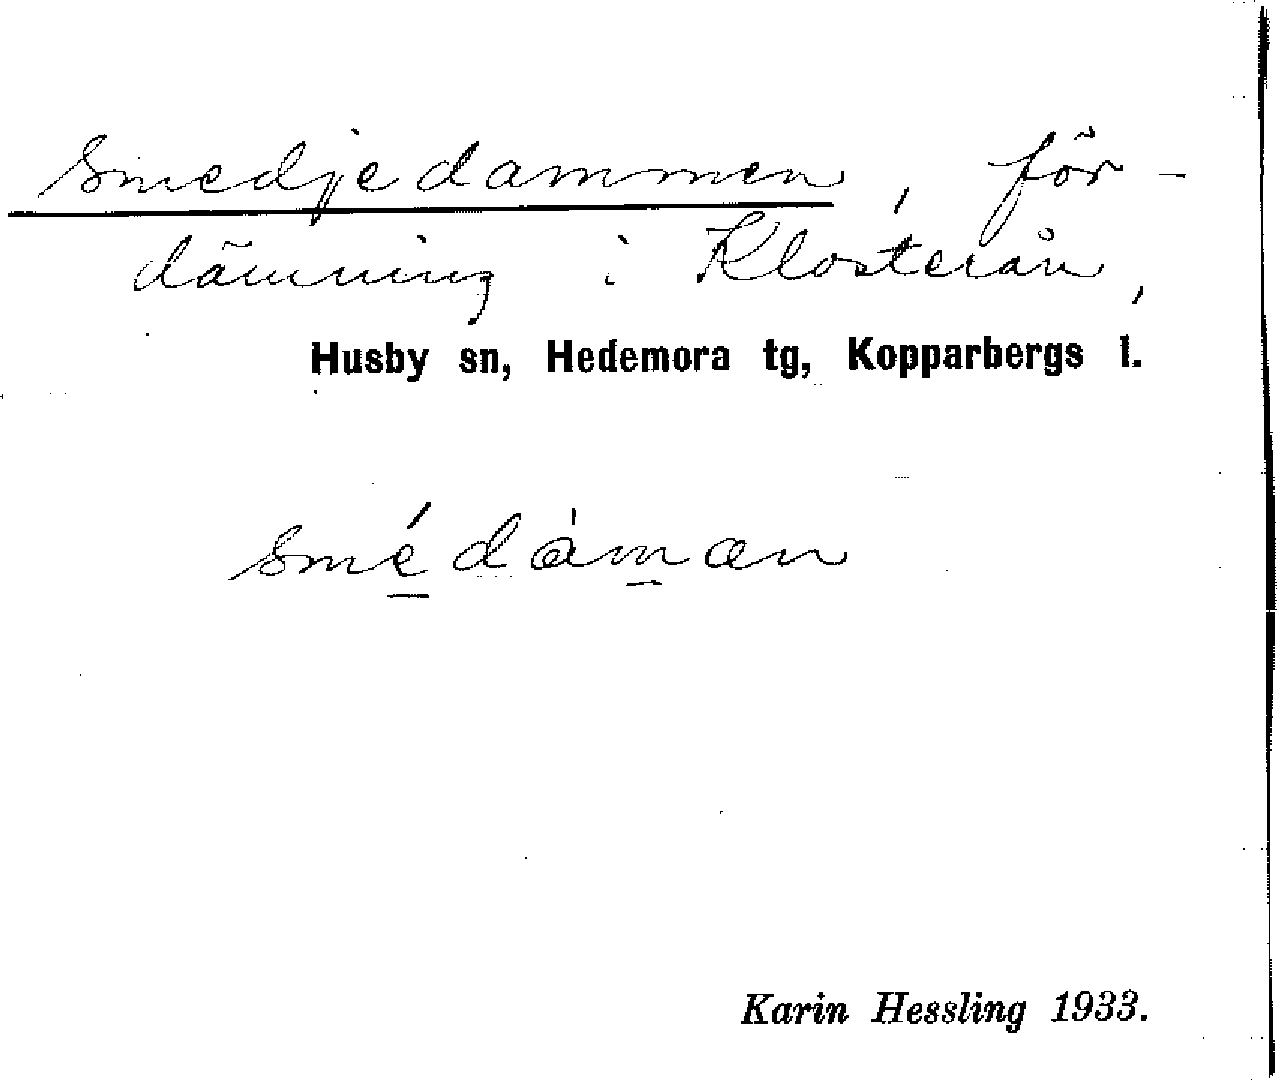 Smedjedammen, för-
dämning i Klosterån,
Husby sn, Hedemora tg, Kopparbergs l.
smédàmæn
Karin Hessling 1933.